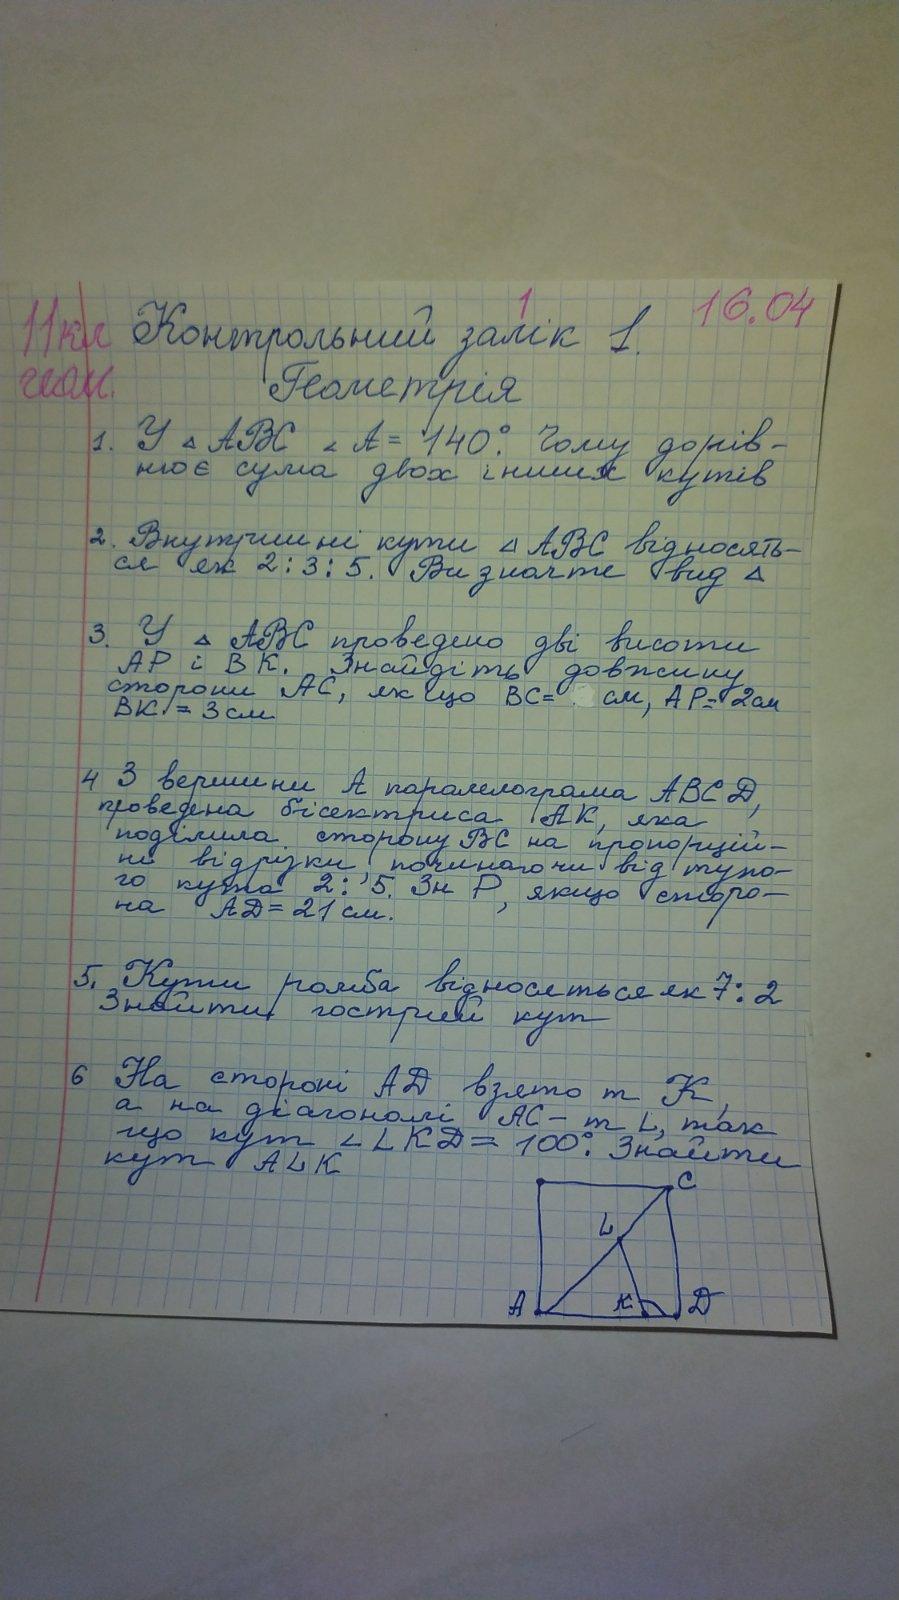 1
16.04
11кл Контрольний залік 1.
геом. Геометрія
1. У △ ABC ∠ A = 140°. Чому дорів-
нює сума двох інших кутів
2. Внутришні кути △ ABC відносять-
ся як 2:3:5. Визначте вид △
3. У △ ABC проведено дві висоти
AP і BK. Знайдіть довжину
сторони AC, якщо BC= см, AP=2см
BK = 3см
4 З вершини A паралелограма ABCD,
проведена бісектриса AK, яка
поділила сторону BC на пропорцій-
ні відрізки починаючи від тупо-
го кута 2:5. Зн P, якщо сторо-
на AD=21см.
5. Кути ромба відносяться як 7:2
Знайти гострий кут
6 На стороні AD взято т K,
а на діагоналі AC- т L, так
що кут ∠ LKD = 100°. Знайти
кут ALK
C
L
A K D